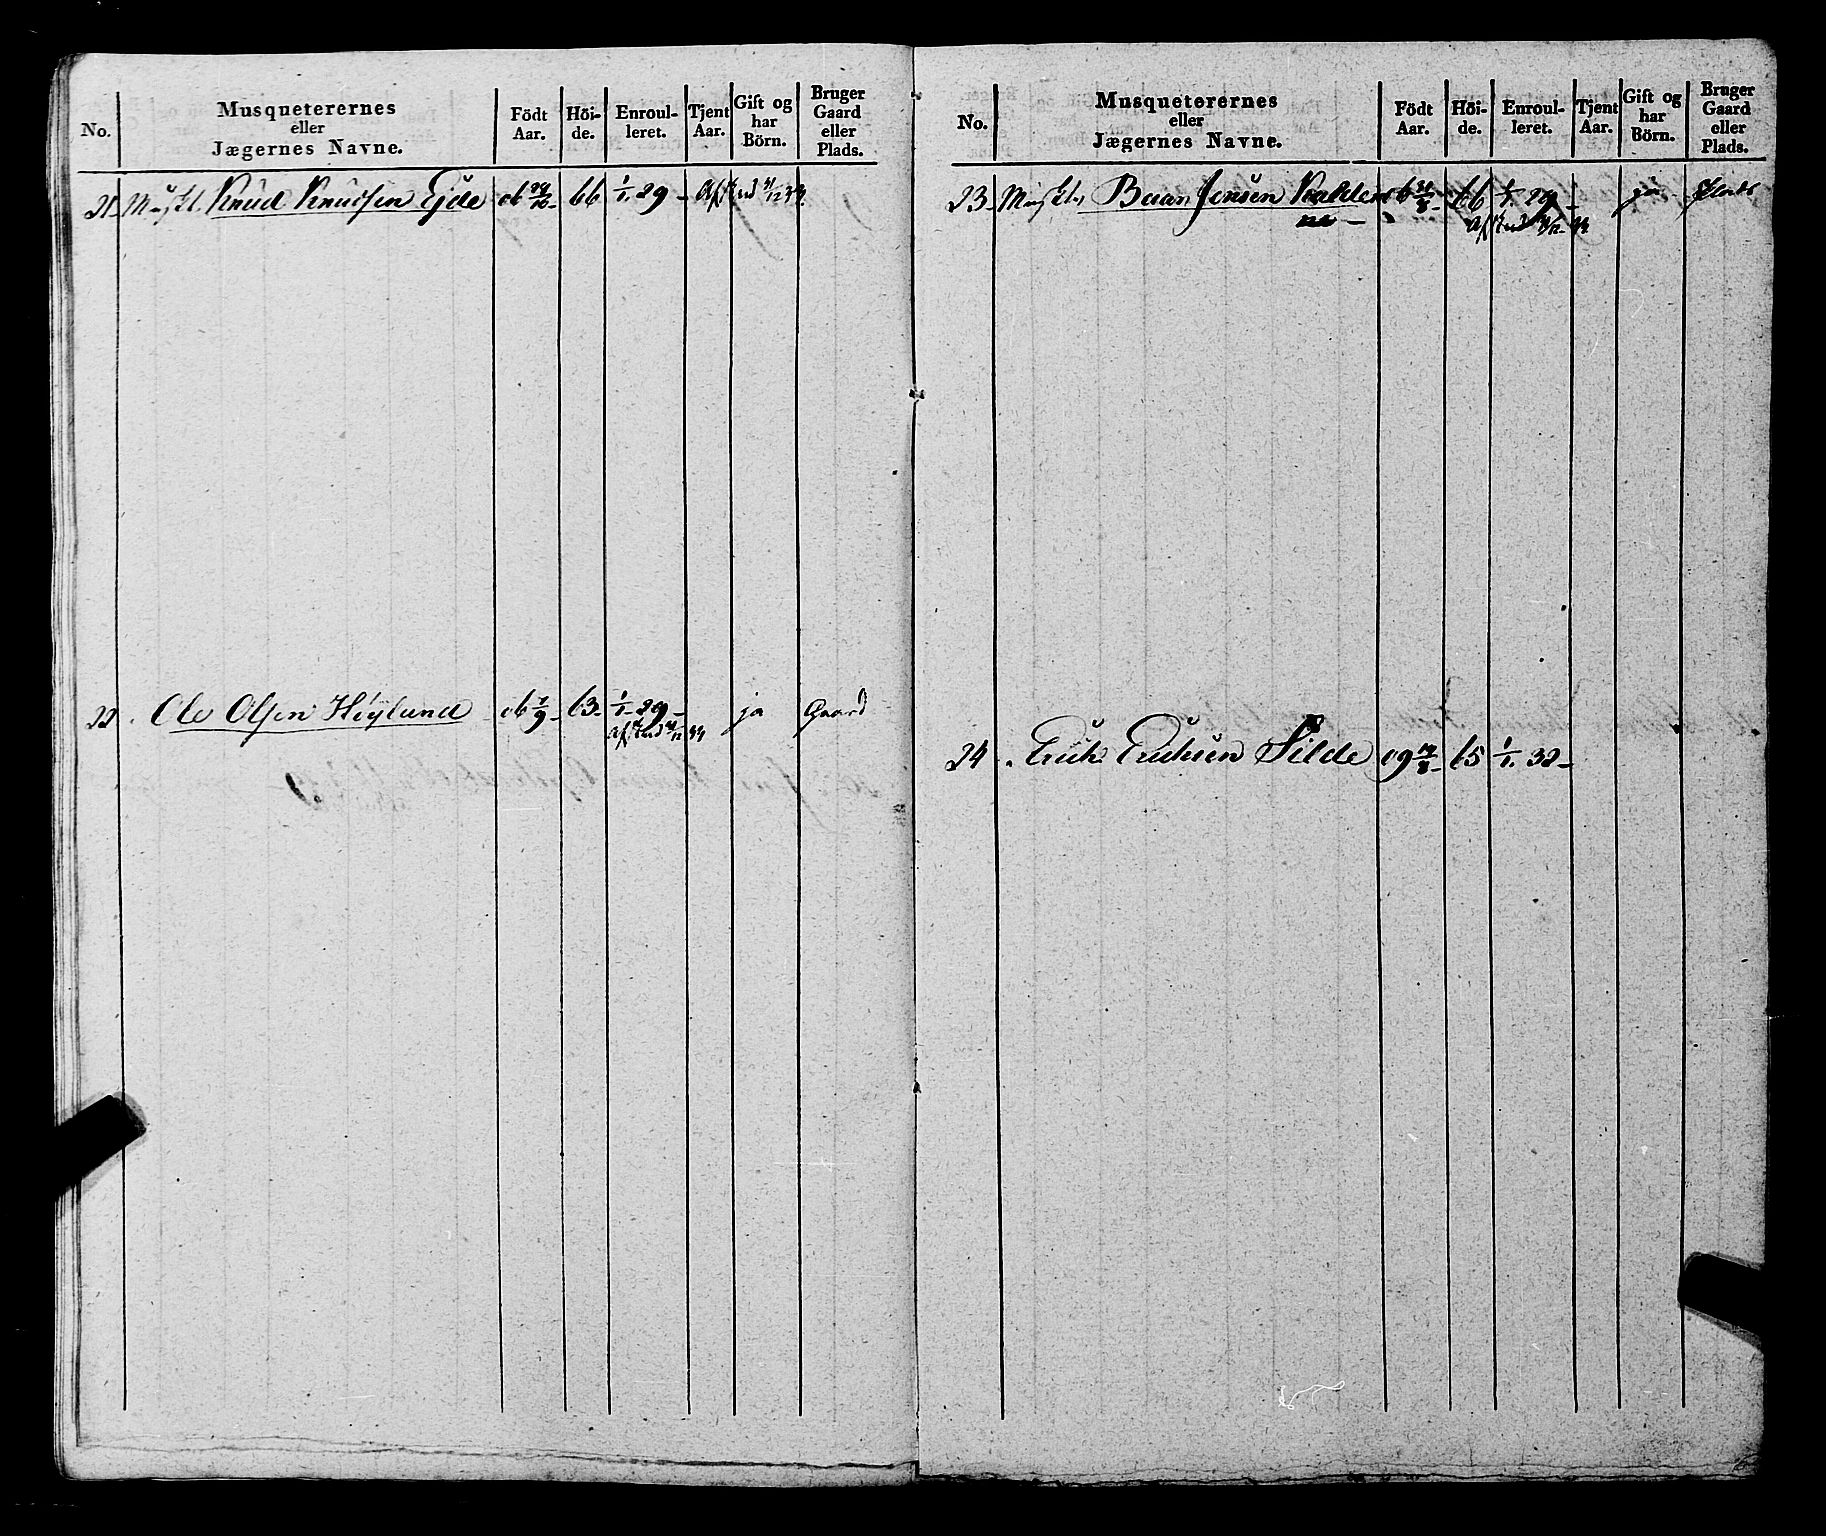 No.
Musqueterernes
eller
Jægernes Navne.
Födt
Aar.
Höi-
de.
Enroul-
leret.
Tjent
Aar.
Gift og
har
Börn.
Bruger
Gaard
eller
Plads.
21 Muskt. Knud Knudsen Ejde 06 66 1/1 29 - Afskd 31/12 34
22 Ole Olsen Höylund 06 7/9 63 - 1/1 - 29 - ja Gaard
Afskd 31/12 34
No.
Musqueterernes
eller
Jægernes Navne.
Födt
Aar.
Höi-
de.
Enroul-
leret.
Tjent
Aar.
Gift og
har
Börn.
Bruger
Gaard
eller
Plads.
23 - Muskt. Jensen 66 1/1 29 - ja Plads
Afskd 31/12 34
24 Erik Eriksen Silde 09 65 1/1 32 -